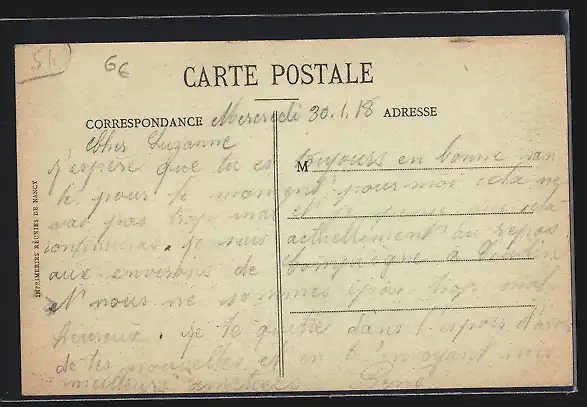 51.
6€
CARTE POSTALE
CORRESPONDANCE Mercredi 30.1.18 ADRESSE
Cher Suzanne
M
J'espère que tu es toujours en bonne san
te pour le moment, pour moi cela ne
vas pas trop mal et je pense que cela
continueras. je suis actuellement au repos
aux environs de Compiègne à
et nous ne sommes pas trop mal
heureux. Je te quitte dans l'espoir d'avoir
de tes nouvelles et en t'envoyant mes
meilleurs amitiés René
IMPRIMERIES RÉUNIES DE NANCY